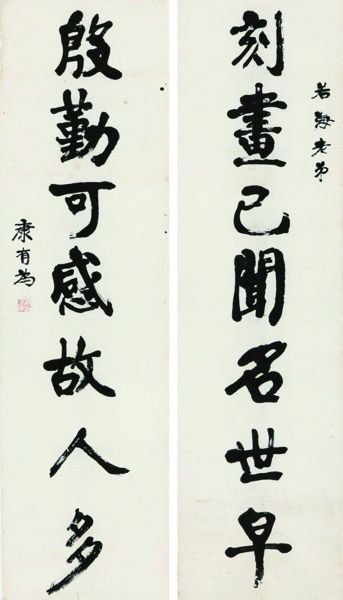 若海老弟
刻畫已聞名世早
殷勤可感故人多
康有為